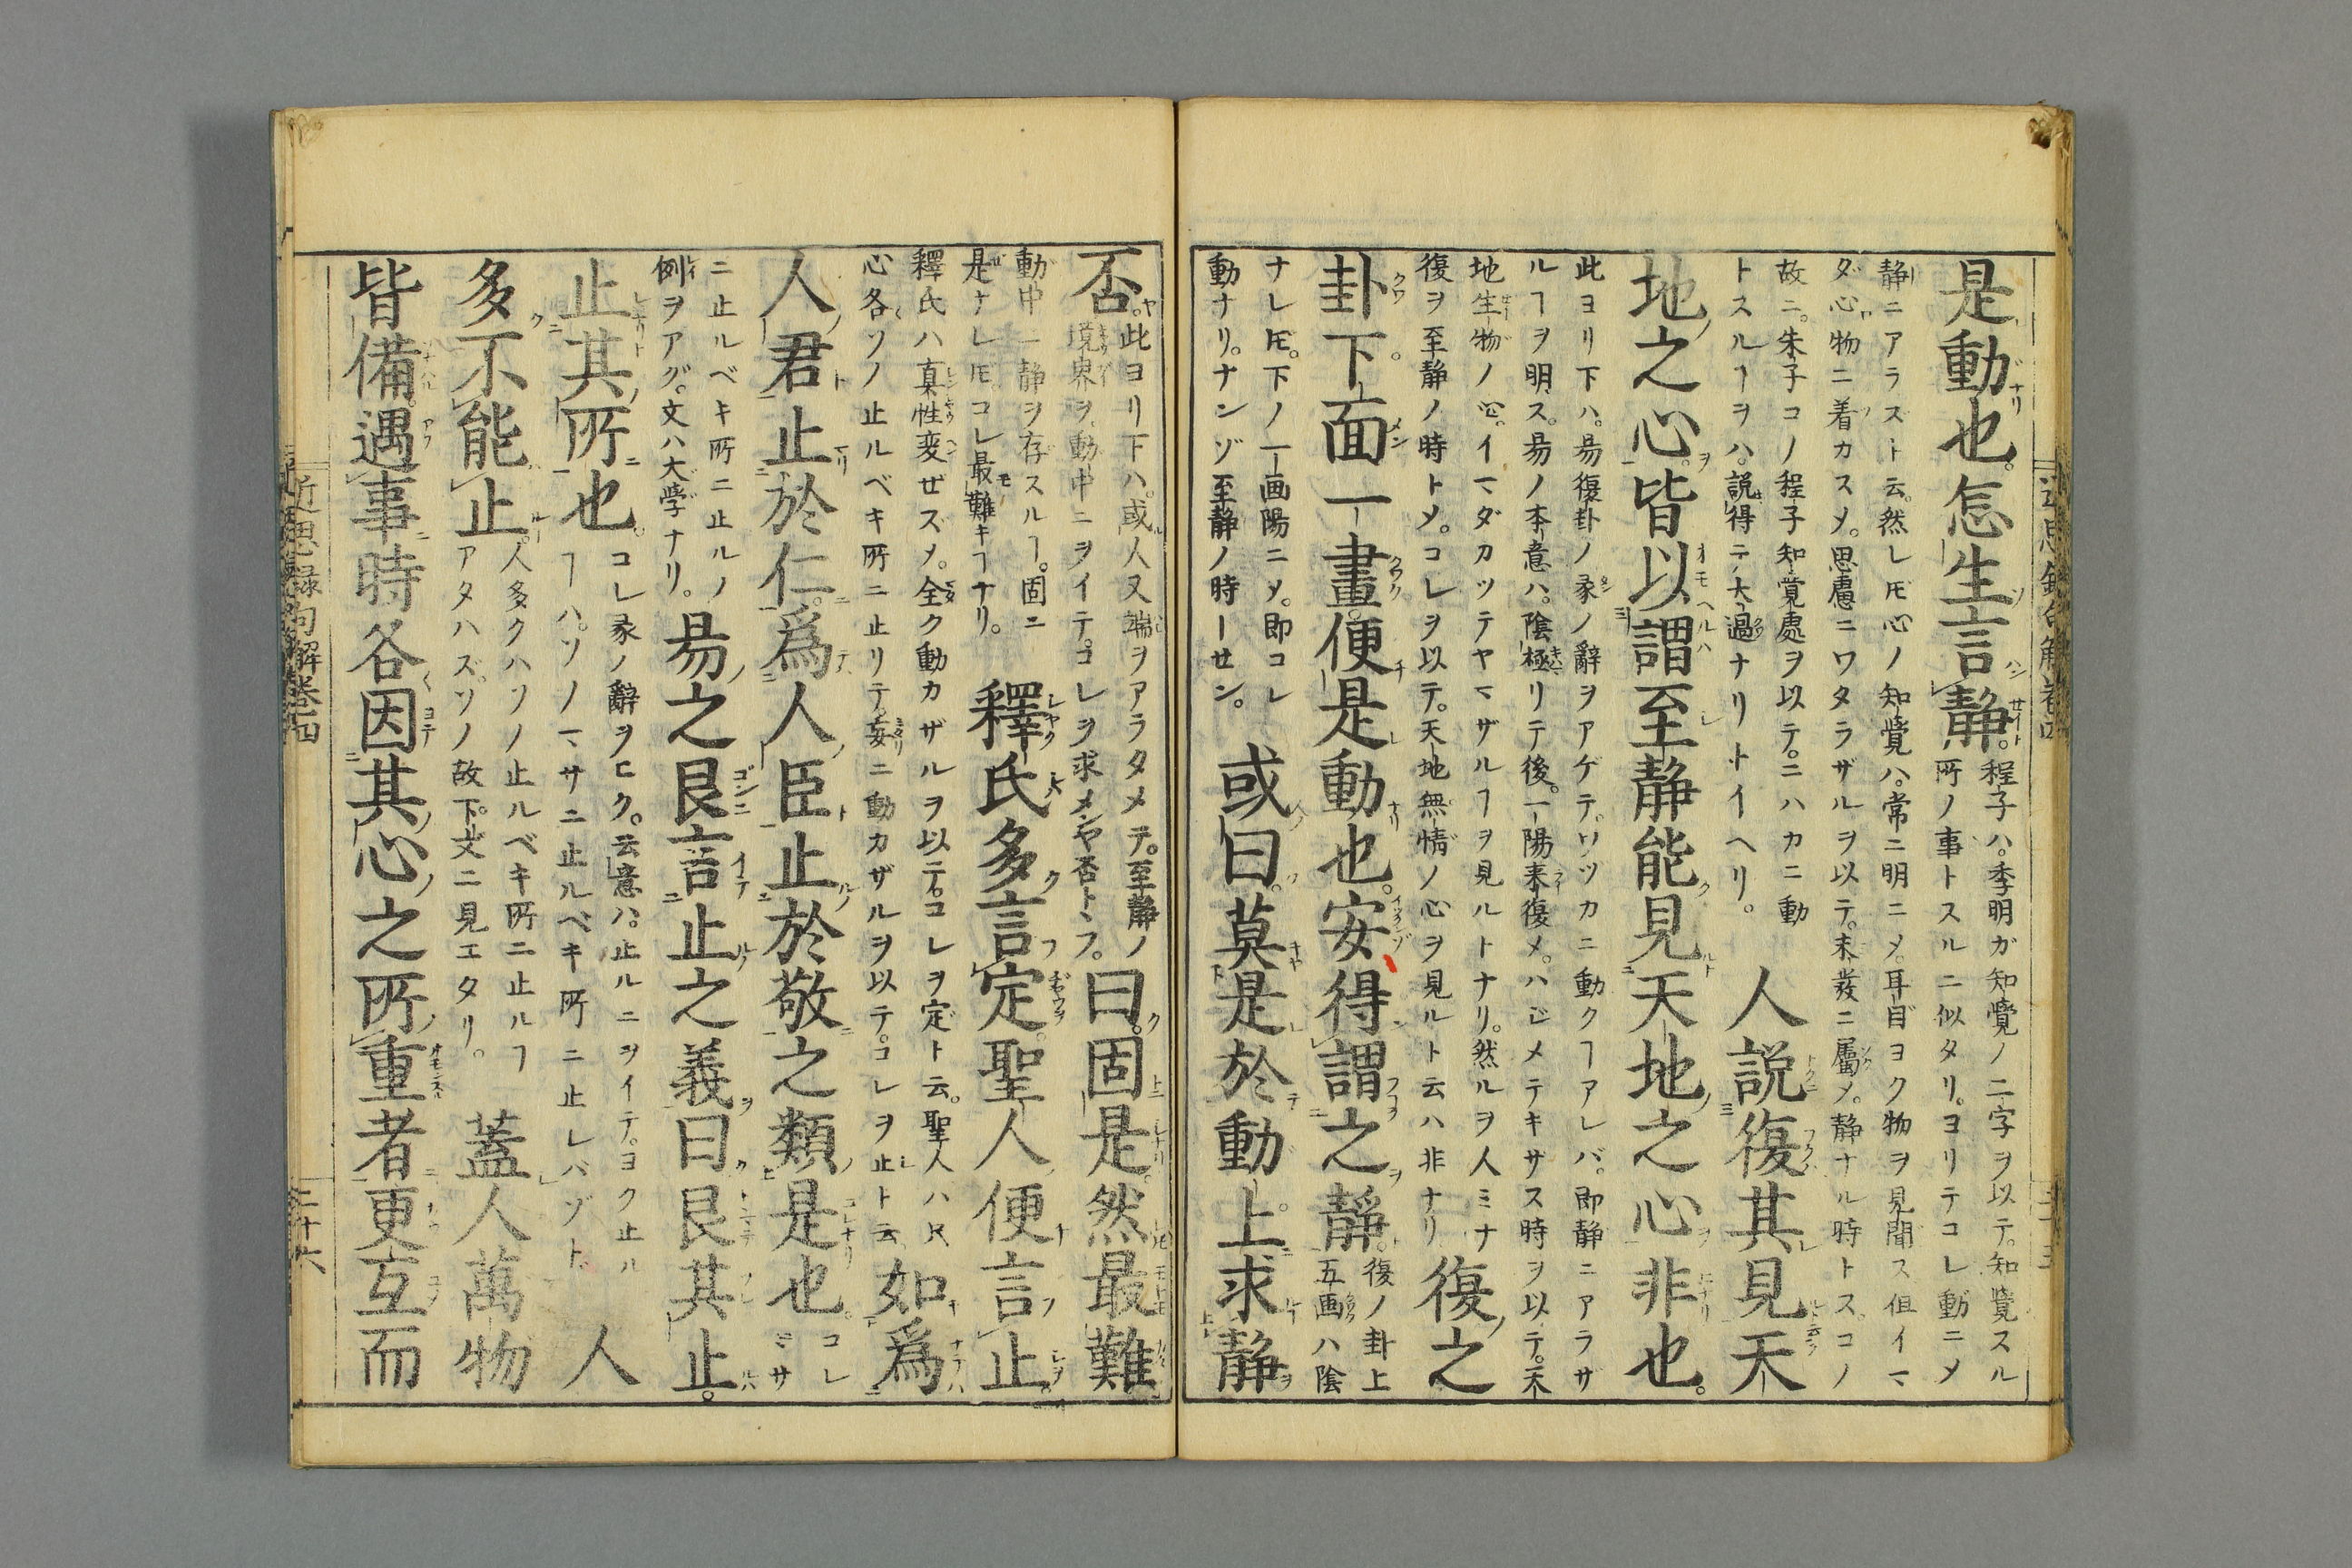 是動也。怎生言靜。程子ハ。季明ガ知覺ノ二字ヲ以テ。知覺スル
所ノ事トスルニ似タリ。ヨリテコレ動ニメ
静ニアラズト云。然レ𪜈心ノ知覺ハ。常ニ明ニメ。耳目ヨク物ヲ見聞ス但イマ
ダ心物ニ着カスメ。思慮ニワタラザルヲ以テ。未發ニ屬メ。静ナル時トスコノ
故ニ。朱子コノ程子知覺處ヲ以テ。ニハカニ動
トスルヿヲハ。説得テ大過ナリトイヘリ。
人説復其見天
地之心。皆以謂至静能見天地之心非也。
此ヨリ下ハ。昜復卦ノ彖ノ辭ヲアゲテ。ワツカニ動クヿアレバ。即静ニアラザ
ルヿヲ明ス。昜ノ本意ハ。陰極リテ後。一陽来復メ。ハジメテキサス時ヲ以テ。天
地生物ノ心。イマダカツテヤマザルヿヲ見ルトナリ。然ルヲ人ミナ
復ヲ至静ノ時トメ。コレヲ以テ。天地無情ノ心ヲ見ルト云ハ非ナリ
復之
卦下面一畫。便是動也。安得謂之靜。復ノ卦上
五画ハ陰
ナレ𪜈。下ノ一画陽ニメ。即コレ
動ナリ。ナンゾ至静ノ時ーセン。
或曰。莫是於動上求靜
否。此ヨリ下ハ。或人又端ヲアラタメテ。至静ノ
境界ヲ。動中ニヲイテ。コレヲ求メンヤ否トヽフ。
曰。固是。然最難
動中ニ静ヲ存スルヿ。固ニ
是ナレ𪜈。コレ最難キヿナリ。
釋氏多言定。聖人便言止
釋氏ハ真性変ゼズメ。全ク動カザルヲ以テ。コレヲ定ト云。聖人ハ只
心各ソノ止ルベキ所ニ止リテ。妄ニ動カザルヲ以テ。コレヲ止ト云。
如爲
人君止於仁。爲人臣止於敬之類是也。コレ
ミサ
ニ止ルベキ所ニ止ルノ
例ヲアグ。文ハ大學ナリ。
昜之艮言止之義曰艮其止。
止其所也。コレ彖ノ辭ヲヒク。云意ハ。止ルニヲイテ。ヨク止ル
ヿハ。ソノマサニ止ルベキ所ニ止レバゾト。
人
多不能止。人多クハソノ止ルベキ所ニ止ルヿ
アタハズ。ソノ故下。文ニ見エタリ。
蓋人萬物
皆備。遇事時各因其心之所重者更互而
近思録句解卷四
二十六